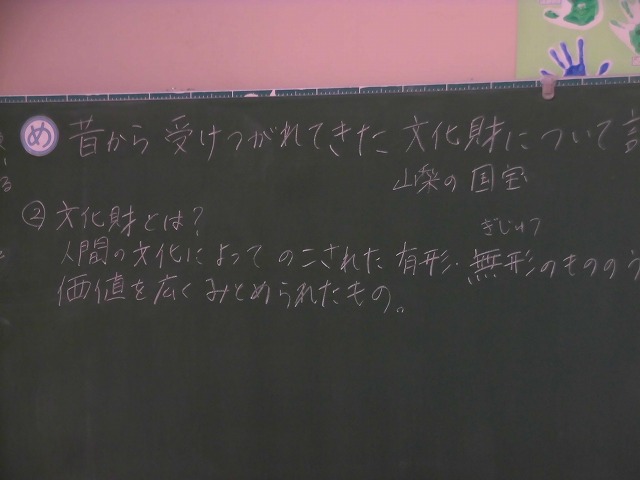 め 昔から 受けつがれてきた 文化財について
山梨の 国宝
② 文化財とは?
ぎじゅつ
人間の文化によって のこされた 有形・無形のもののう
価値を広く みとめられたもの。